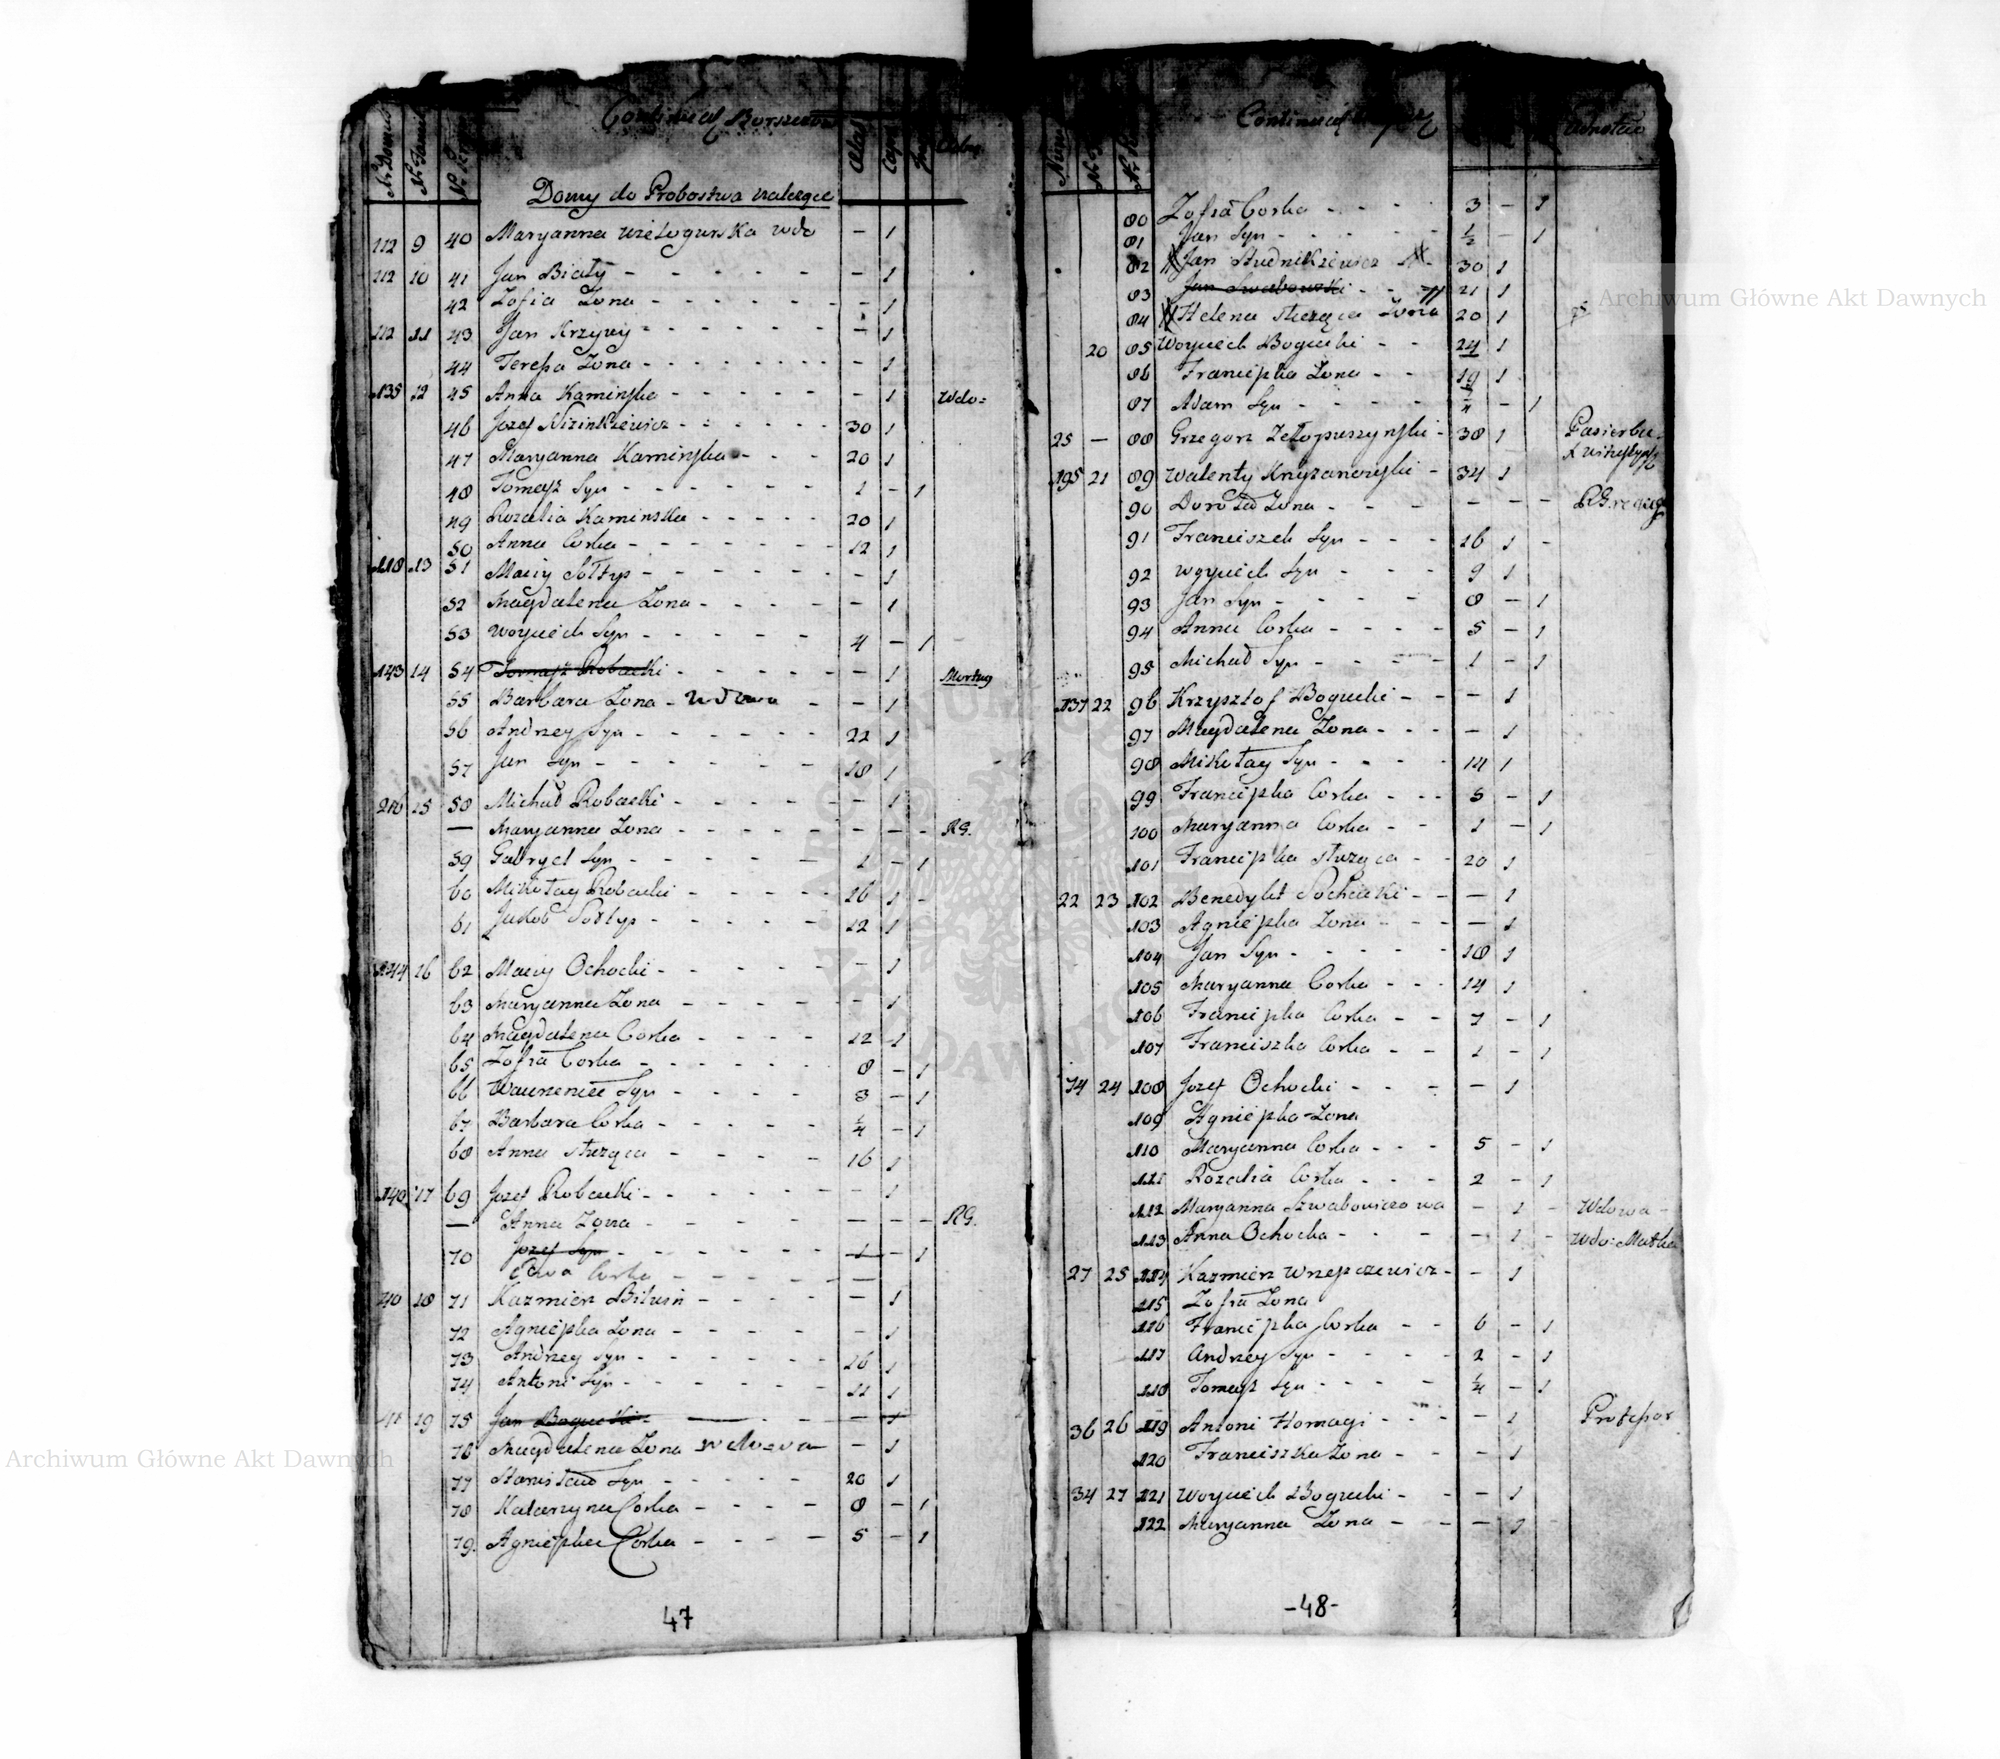 Nr Domus Nr Famil Nr Continuat Borszczow Aetas
Domy do Probostwa należące
112 9 40 Maryanna wdo — 1
112 10 41 Jan Biały - - - - — 1
42 Zofia Zona - - - - — 1
112 11 43 Jan Krzywy - - - - — 1
44 Teresa Zona - - - - — 1
135 12 45 Anna Kaminska - - - - — 1 Wdo=
46 Jozef Nizinkiewicz - - - 30 1
47 Maryanna Kaminska - - - 20 1
48 Tomasz Syn - - - - 1 - 1
49 Rozalia Kaminska - - - - 20 1
50 Anna Corka - - - - 12 1
118 13 51 Maciy Sołtys - - - - — 1
52 Magdalena Zona - - - - — 1
53 Woyciech Syn - - - - 4 - 1
143 14 54 Tomasz Robacki - - - - — 1
55 Barbara Zona - wdowa - — 1
56 Andrzey Syn - - - - 22 1
57 Jan Syn - - - - 18 1
216 15 58 Michał Robacki - - - - — 1
— Maryanna Zona - - - - — - - RG.
59 Gabryel Syn - - - - 1 - 1
60 Mikołay Robacki - - - - 16 1
61 Jakob Sołtys - - - - 12 1
144 16 62 Maciy Ochocki - - - - — 1
63 Maryanna Zona - - - - — 1
64 Magdalena Corka - - - - 12 1
65 Zofia Corka - - - - 8 - 1
66 Syn - - - - 3 - 1
67 Barbara Corka - - - - ¼ - 1
68 Anna słuząca - - - - 16 1
140 17 69 Jozef Robacki - - - - — 1
— Anna Zona - - - - — - - RG.
70 Jozef Syn - - - - 1 - 1
Ewa Corka - - - - —
40 18 71 Kazmierz Bilusn - - - - — 1
72 Agnieszka Zona - - - - — 1
73 Andrzey Syn - - - - 16 1
74 Antoni Syn - - - - 11 1
41 19 75 Jan Bogucki - - - — 1
76 Magdalena Zona wdowa — 1
77 Stanisław Syn - - - - 20 1
78 Katarzyna Corka - - - - 8 - 1
79. Agnieszka Corka - - - - 5 - 1
47
Continuat
80 Zofia Corka - - - 3 - 1
81 Jan Syn - - - - ½ - 1
82 Jan Studnikiewicz 30 1
83 Jan Swabowski - - 21 1
84 Helena słuząca Zona 20 1
20 85 Woyciech Bogucki - - 24 1
86 Franciszka Zona - - 19 1
87 Adam Syn - - - - ¼ - 1
25 — 88 Grzegorz Zełopuszynski - 38 1
195 21 89 Walenty Krzyzanowski - 34 1
90 Dorota Zona - - - — - -
91 Franciszek Syn - - - 16 1 -
92 Woyciech Syn - - - 9 1
93 Jan Syn - - - - 8 - 1
94 Anna Corka - - - - 5 - 1
95 Michał Syn - - - - 1 - 1
137 22 96 Krzysztof Bogucki - - — 1
97 Magdalena Zona - - - — 1
98 Mikołay Syn - - - - 14 1
99 Franciszka Corka - - - 5 - 1
100 Maryanna Corka - - 1 - 1
101 Franciszka słuząca - - 20 1
22 23 102 Benedykt Sochacki - - — 1
103 Agnieszka Zona - - - — 1
104 Jan Syn - - - - 18 1
105 Maryanna Corka - - - 14 1
106 Franciszka Corka - - 7 - 1
107 Franciszka Corka - - 1 - 1
74 24 108 Jozef Ochocki - - - — 1
109 Agnieszka Zona
110 Maryanna Corka - - - 5 - 1
111 Rozalia Corka - - - 2 - 1
112 Maryanna Szwabowiczowa - 1 - Wdowa -
113 Anna Ochocka - - - - 1 - Wdo= Matka
27 25 114 Kazmierz Wrzepczewicz - - 1
115 Zofia Zona
116 Franciszka Corka - - 6 - 1
117 Andrzey Syn - - - - 2 - 1
118 Tomasz Syn - - - - ¼ - 1
36 26 119 Antoni Homagi - - - — 1 Professor
120 Franciszka Zona - - — 1
34 27 121 Woyciech Bogucki - - - 1
122 Maryanna Zona - - — 1 -
-48-
Archiwum Główne Akt Dawnych
Archiwum Główne Akt Dawnych